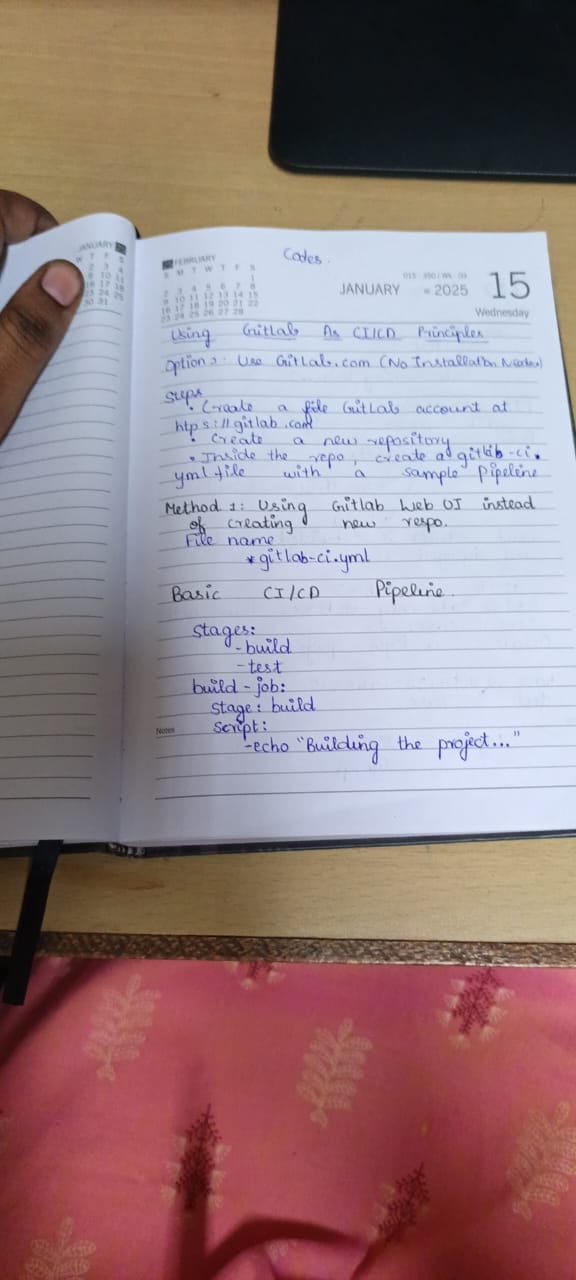 JANUARY
W T F S
2 3 4
9 10 11
16 17 18
23 24 25
30 31
FEBRUARY
S M T W T F S
1
2 3 4 5 6 7 8
9 10 11 12 13 14 15
16 17 18 19 20 21 22
23 24 25 26 27 28
Codes.
015 - 350 / Wk 03
JANUARY 2025 15
Wednesday
Using GitLab As CI/CD Principles
Option 2: Use GitLab.com (No Installation Needed)
Steps
• Create a file GitLab account at
htps://gitlab.com
• Create a new repository
• Inside the repo, create a gitlab-ci.
yml file with a sample pipeline
Method 1: Using Gitlab Web UI instead
of creating new respo.
File name
* gitlab-ci.yml
Basic CI/CD Pipeline.
stages:
-build
-test
build-job:
stage: build
Script:
Notes
-echo "Building the project..."